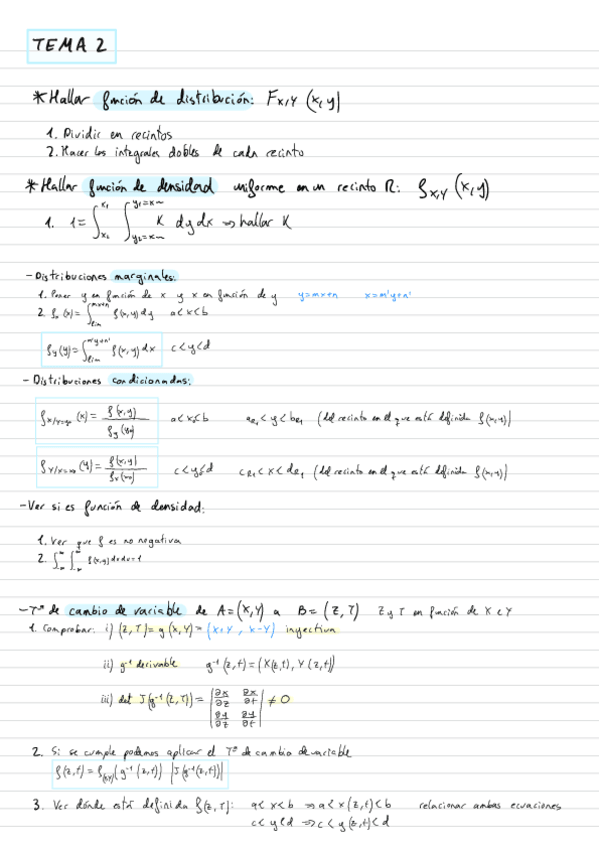 TEMA 2
* Hallar función de distribución: F_{X,Y} (x,y)
1. Dividir en recintos
2. Hacer las integrales dobles de cada recinto
* Hallar función de densidad uniforme en un recinto R: f_{X,Y} (x,y)
1. 1 = ∫_{x_2}^{x_1} ∫_{y_2=x~}^{y_1=x~} K dy dx ⇒ hallar K
- Distribuciones marginales:
1. Poner y en función de x y x en función de y y=mx+n x=m'y+n'
2. f_x (x) = ∫_{lim}^{mx+n} f(x,y) dy a<x<b
f_y (y) = ∫_{lim}^{m'y+n'} f(x,y) dx c<y<d
- Distribuciones condicionadas:
f_{X/Y=y_0} (x) = f(x,y) / f_y(y_0) a<x<b a_{R1}<y<b_{R1} (del recinto en el que está definida f(x,y))
f_{Y/X=x_0} (y) = f(x,y) / f_x(x_0) c<y<d c_{R1}<x<d_{R1} (del recinto en el que está definida f(x,y))
- Ver si es función de densidad:
1. Ver que f es no negativa
2. ∫_{-∞}^{∞} ∫_{-∞}^{∞} f(x,y) dx dy = 1
- Tª de cambio de variable de A=(X,Y) a B=(Z,T) Z y T en función de X e Y
1. Comprobar: i) (Z,T) = g(X,Y) = (X+Y, X-Y) inyectiva
ii) g⁻¹ derivable g⁻¹(z,t) = (X(z,t), Y(z,t))
iii) det J(g⁻¹(Z,T)) = |∂x/∂z ∂x/∂t ; ∂y/∂z ∂y/∂t| ≠ 0
2. Si se cumple podemos aplicar el Tª de cambio de variable
f(z,t) = f_{(X,Y)}(g⁻¹(z,t)) |J(g⁻¹(z,t))|
3. Ver dónde está definida f(z,t): a<x<b ⇒ a<x(z,t)<b relacionar ambas ecuaciones
c<y<d ⇒ c<y(z,t)<d